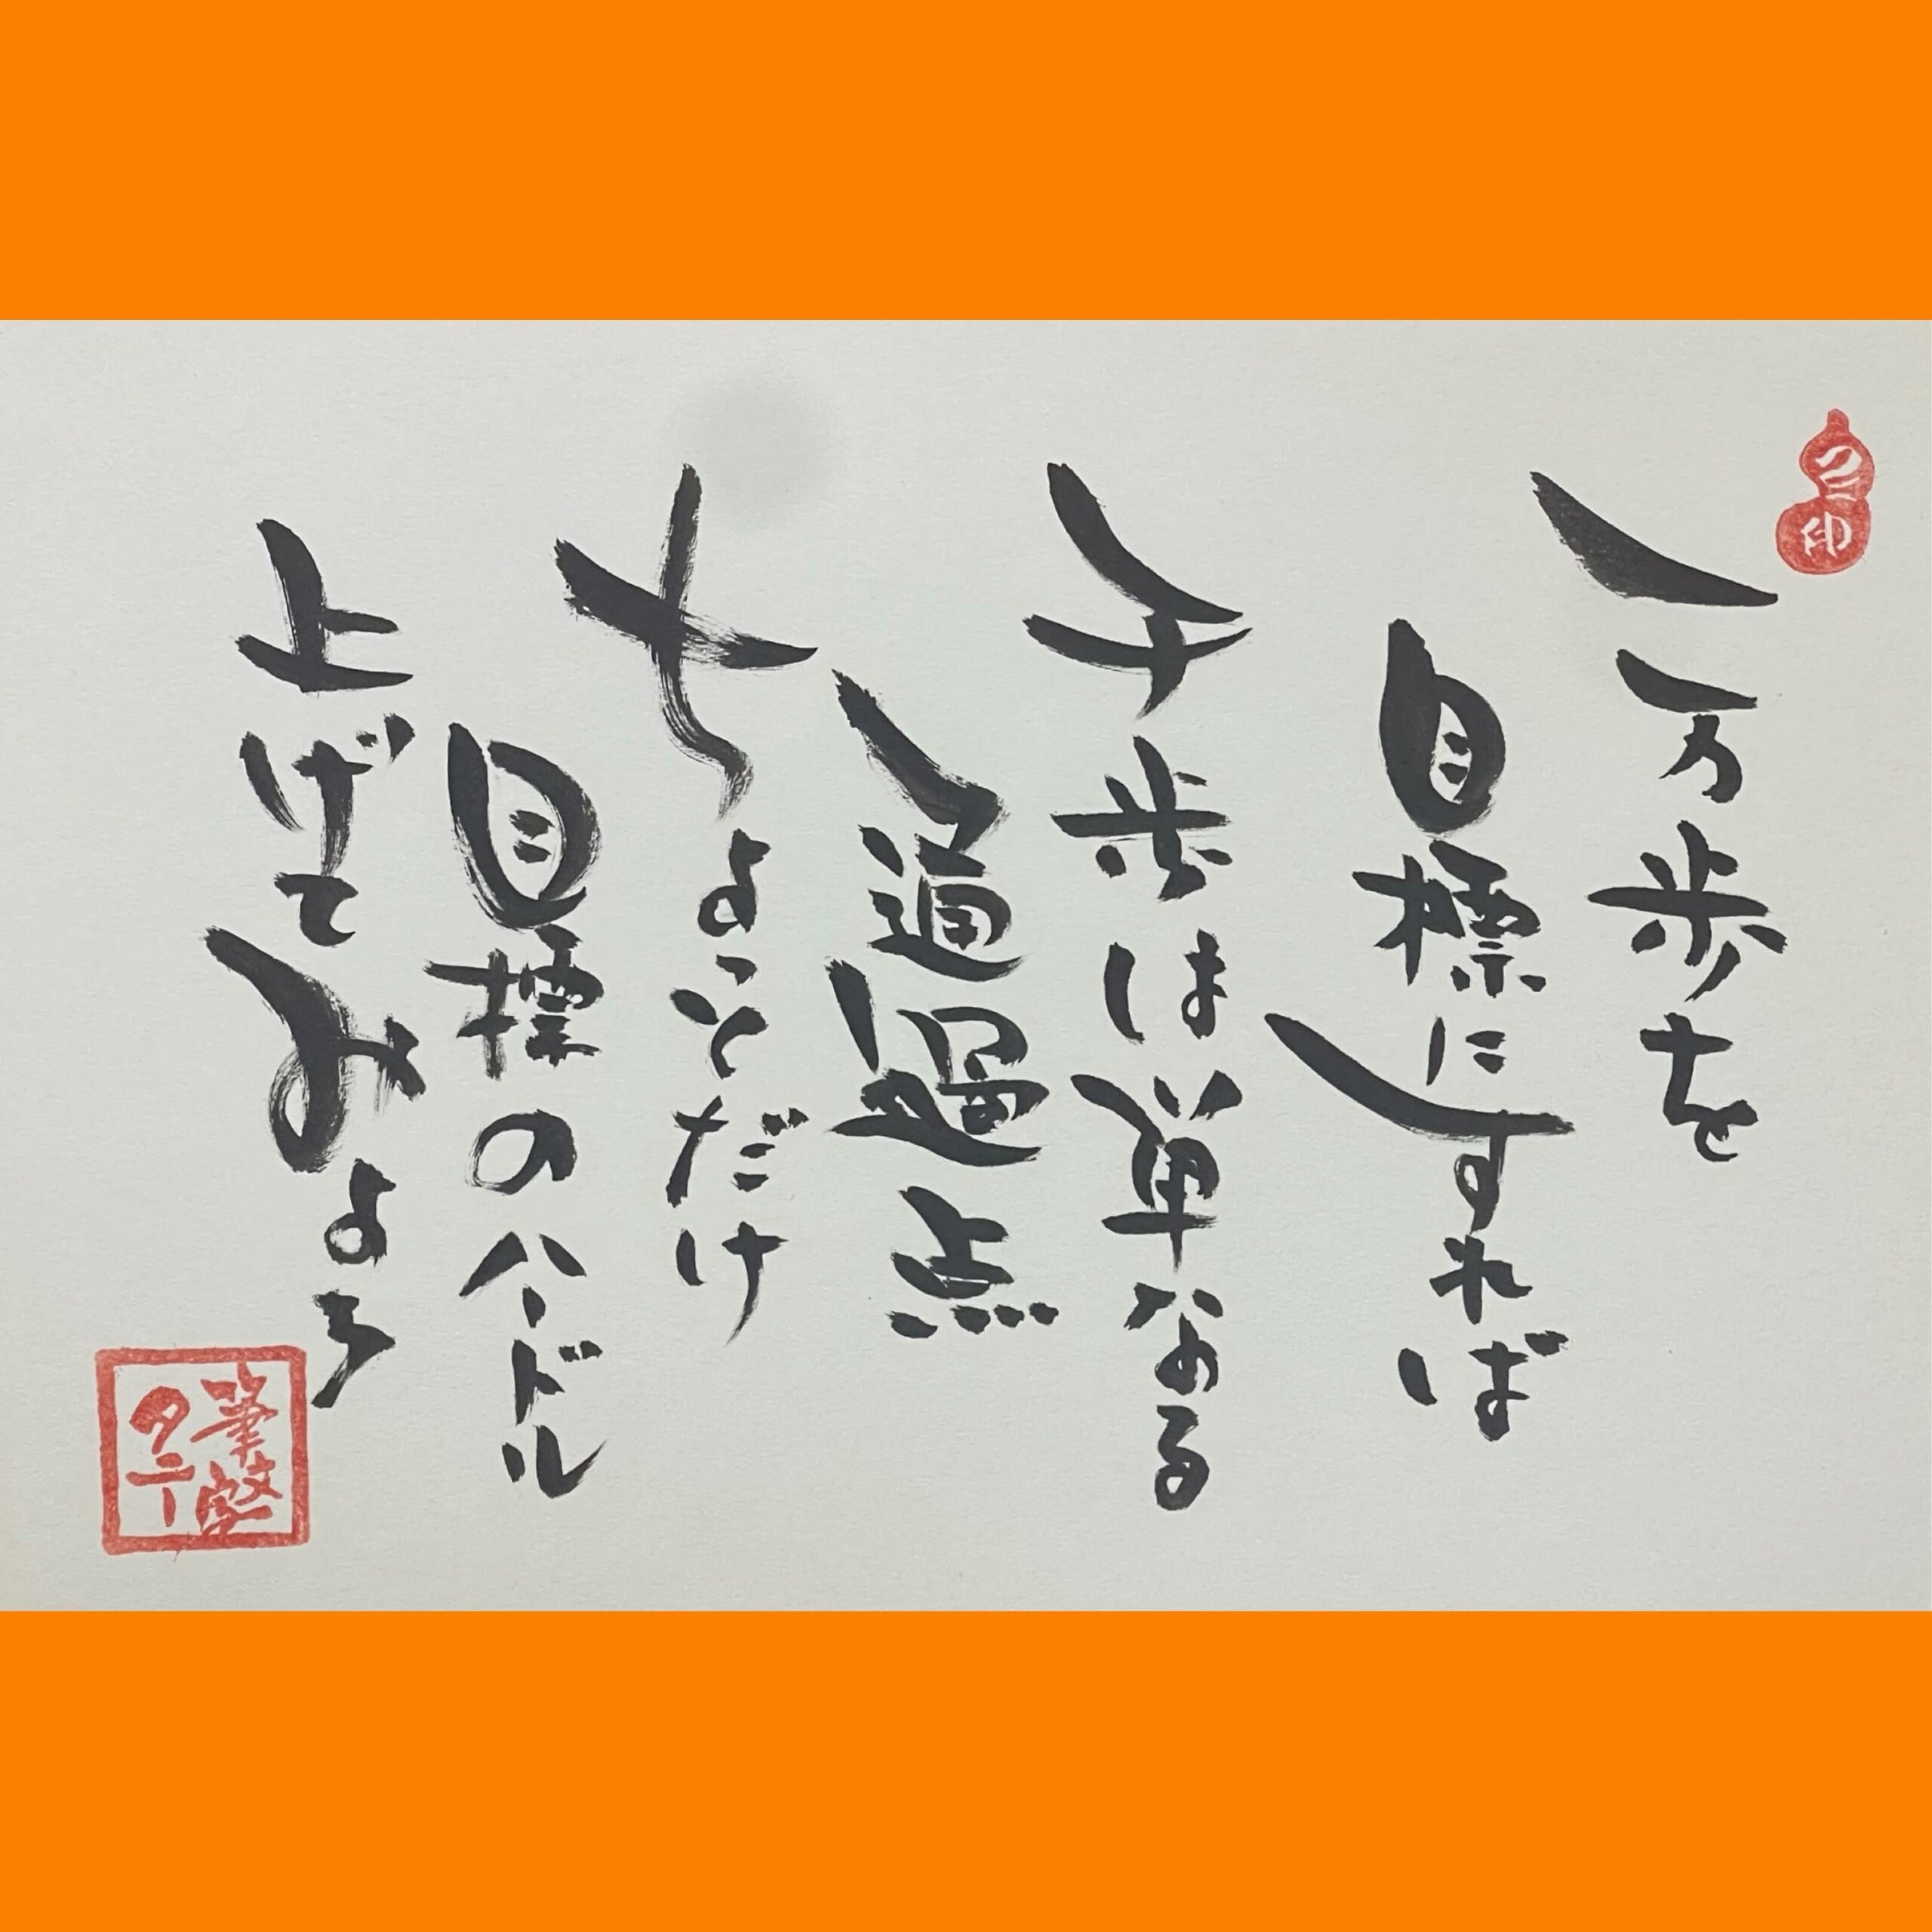 一万歩を
目標にすれば
千歩は単なる
通過点
ちょっとだけ
目標のハードル
上げてみよう
印
筆
タニー